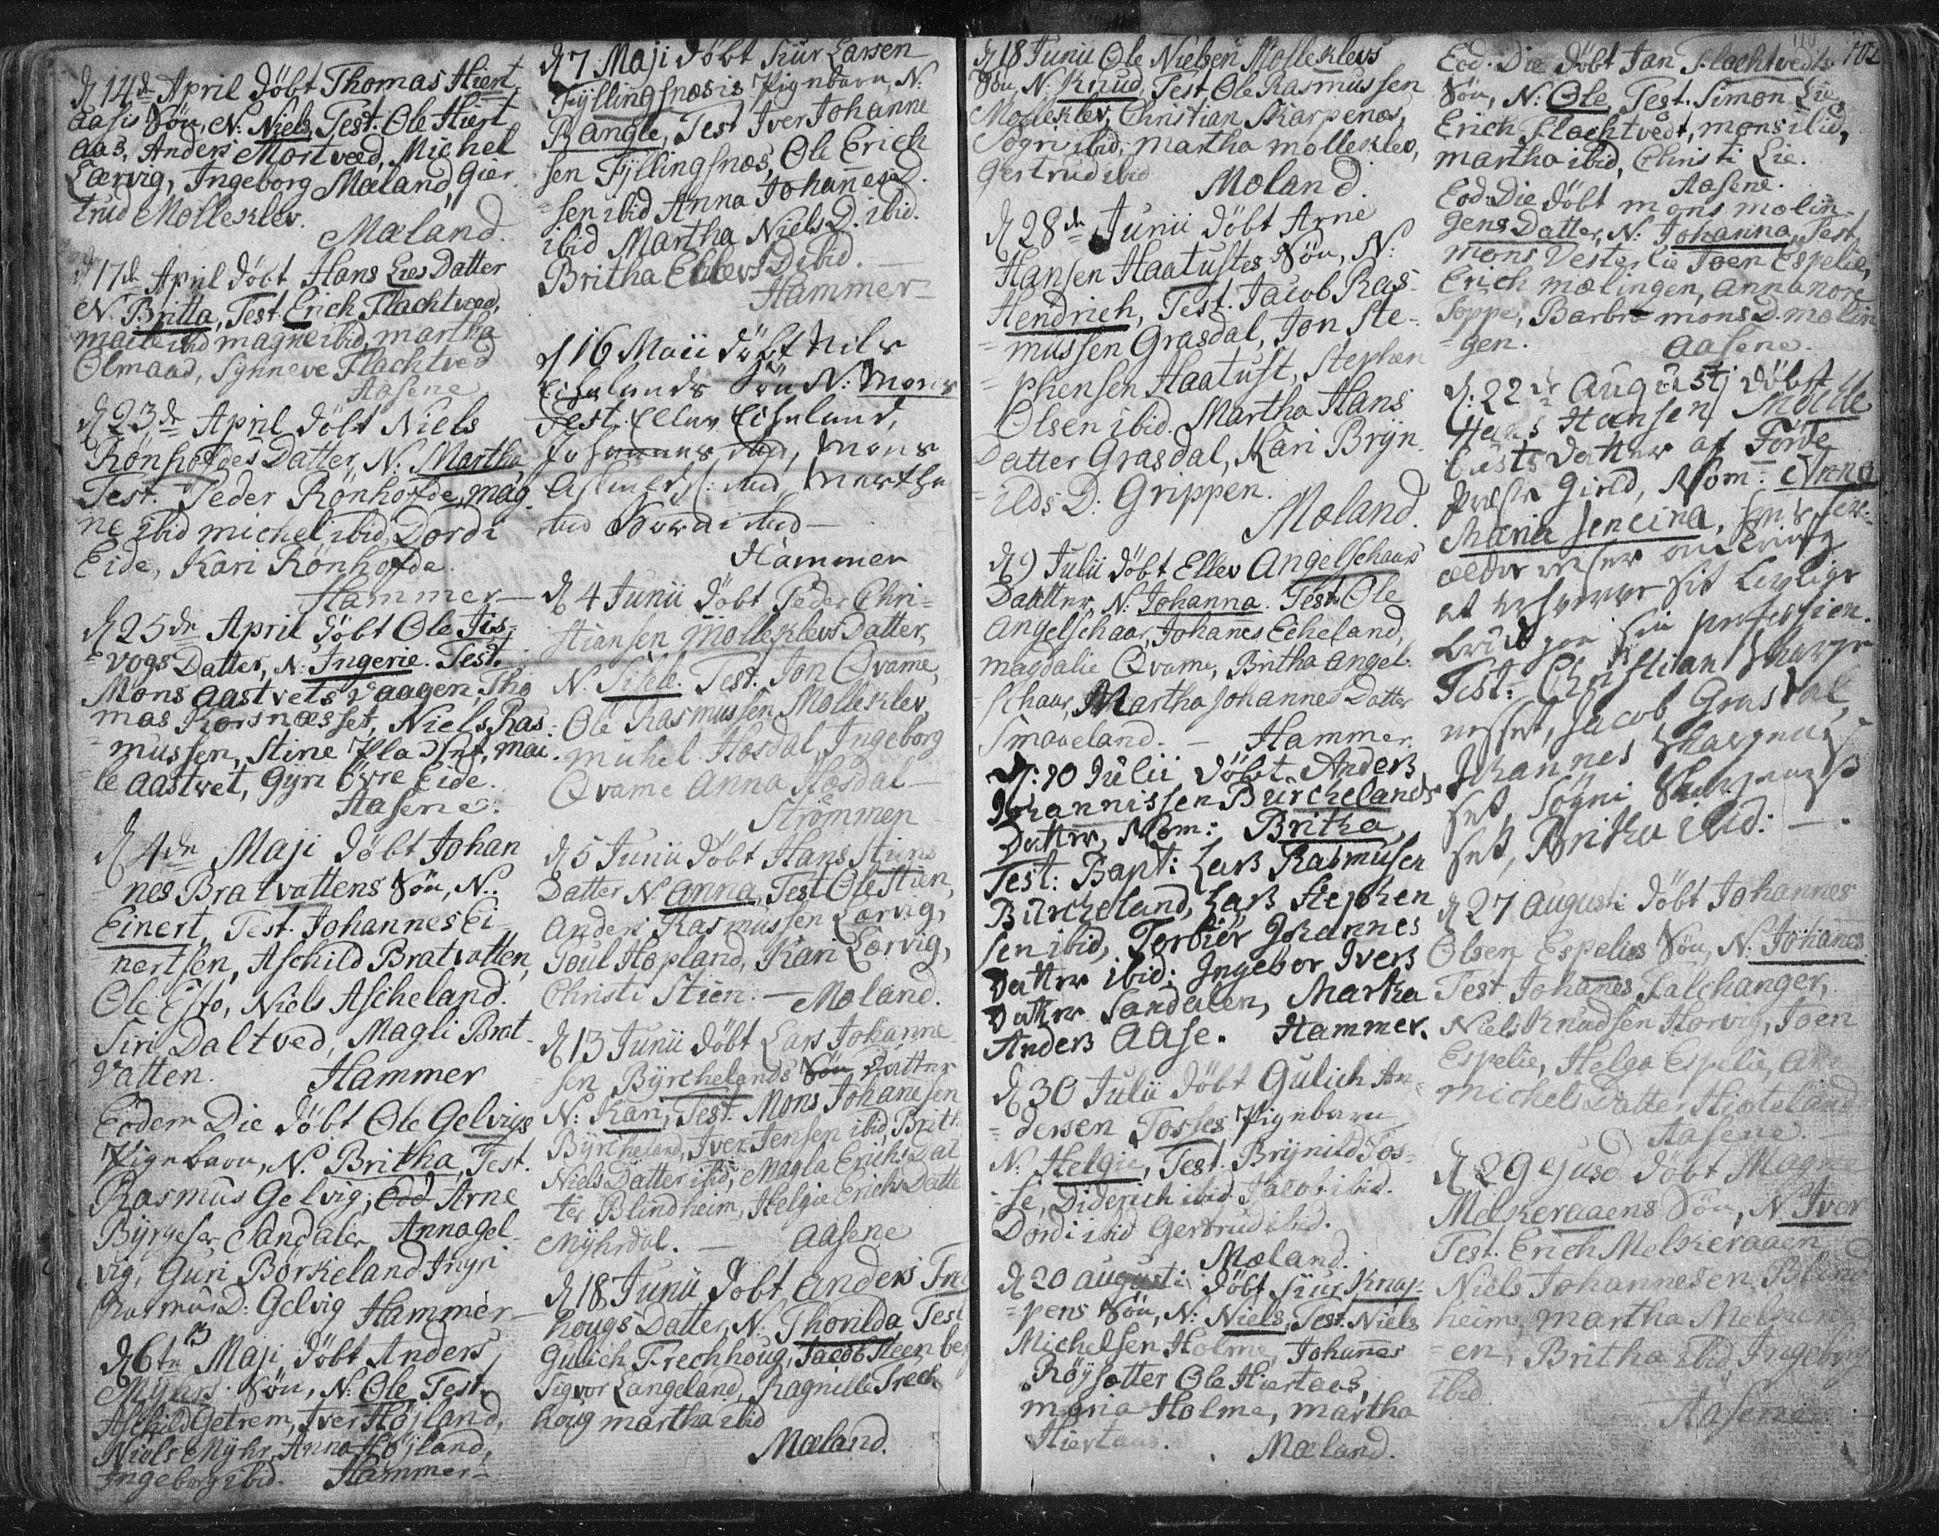 D 14de April döbt Thomas Hiert
aasis Sön, N: Niels, Test. Ole Hiert
aas, Anders Mortved, Michel
Lærvig, Ingeborg Mæland, Gier
trud Molleklev.
Mæland.
D 17de April döbt Hans Lies Datter
N. Britta, Test. Erich Flachtved,
magne ibid, martha
Olmaad, Synneve Flachtved
Aasene
D 23de April döbt Niels
Rönhofdes Datter, N: Martha,
Test. Peder Rönhofde, mag
ne ibid michel ibid, Dordi
Eide, Kari Rönhofde.
Hammer
D 25de April döbt Ole Tis-
vogs Datter, N: Ingerie. Test.
Mons Aastvets Vaagen, Tho
mas Korsnæsset, Niels Ras
mussen, Stine Pladsen, mari
le aastvet, Gyri Övre Eide.
Aasene.
D 4de Maji döbt Johan
nes Bratvattens Sön, N.
Einert, Test. Johannes Ei-
nertsen, Aschild Bratvatten,
Ole Esto, Niels Ascheland.
Siri Daltved, Magli Brat
vatten. Hammer
Eodem Die döbt Ole Gelvigs
Pigebarn, N. Britha, Test.
Rasmus Gelvig, Eod Arne
Byrgeser Sandaler Anna Gel
vig, Guri Börkeland Ingri
Rasmus D: Gelvig Hammer
D 6te Maji döbt Anders
Myhrs Sön, N: Ole Test.
Aschild Getrem, Iver Höjland,
Niels Myhr, Anna Höjland,
Ingeborg ibid. Hammer
D 7 Maji döbt Siur Larsen
Fyllingsnæsis Pigebarn, N:
Rangle, Test Iver Johanne
sen Fyllingsnæs, Ole Erich
sen ibid Anna Johannes D.
ibid Martha Niels D. ibid.
Britha Ellevs D ibid.
Hammer
D 16 Maii döbt Nils
Eikelands Sön N: Mons
Test. Ellev Eikeland,
Johannes ibid, Mons
ibid, Martha
ibid ibid
Hammer
D 4 Junii döbt Peder Chri-
stiansen Molleklevs Datter,
N. Sisele. Test. Jon Qvame,
Ole Rasmussen Molleklev,
michel Hosdal, Ingeborg
Qvame Anna Hosdal
Strömmen
D 5 Junii döbt Hans Stiens
Datter N Anna, Test Ole Stien,
Anders Rasmussen Lærvig,
Poul Hopland, Kari Lærvig,
Christi Stien. Mæland.
D 13 Junii döbt Lars Johanne
sen Byrchelands Sön Datter
N: Kari, Test. Mons Johanesen
Byrcheland, Iver Jensen ibid, Brith
Niels Datter ibid, Magla Erichs Dat
ter Blindheim, Helgie Erichs Datte
Myhrdal. Aasene
D 18 Junii döbt Anders Trec
hougs Datter, N. Thorilda, Test
Gulich Trechhoug, Jacob Steenber
Sigvor Langeland, Ragnille Trech
houg martha ibid
Mæland.
D 18 Junii Ole Nielsen Molleklevs
Sön, N: Knud, Test Ole Rasmussen
Molleklev, Christian Skarpenæs,
Sögri ibid, martha molleklev,
Gertrud ibid Mæland.
D 28de Junii döbt Arne
Hansen Haatufts Sön, N:
Hendrich, Test. Jacob Ras-
mussen Grasdal, Jon Ste-
phensen Haatuft, Stephen
Olsen ibid. Martha Hans
Datter Grasdal, Kari Bryn
ilds D: Grippen.
Mæland.
D 9 Julii döbt Ellev Angelschaars
Daatter, N: Johanna. Test Ole
Angelschaar, Johannes Eikeland,
magdalie Qvame, Britha Angel
schaar, Martha Johannes Datter
Smaaeland. Hammer.
D: 10 Julii döbt Anders
Johannissen Burchelands
Datter, Nom: Britha,
Test: Bapt: Lars Rasmusen
Burcheland, Lars Stephen
sen ibid, Torbiör Johannes
Datter ibid: Ingebor Ivers
Datter Sandalen, Martha
Anders Aase. Hammer.
D 30 Julii döbt Gulich An-
dersen Tosses Pigebarn
N: Helgie, Test. Brynild Tos-
se, Diderich ibid Jacob ibid.
Dordi ibid Gertrud ibid.
Mæland.
D 20 Augusti döbt Siur Knap-
pens Sön, N: Niels, Test. Niels
Michelsen Holme, Johannes
Röysætter Ole Hiertaas,
maria Holme, martha
Hiertaas. Mæland.
102
Eod. Die döbt Jan Flachtveds
Sön, N: Ole, Test. Simon Lie,
Erich Flachtvedt, mons ibid,
martha ibid, Christi Lie.
Aasene.
Eod. Die döbt mons mælin-
gens Datter, N: Johanna, Test,
mons Vesterlie Joen Espelie,
Erich mælingen, Anna nore
Toppe, Barbro mons D. mælin
gen. Aasene.
D: 22de Augustj döbt
Hans Hansen Mölle
Datter af Förde
Præste Gield, Nom: Anna
Maria Jencina,
Test: Christian Skarpe
nesset, Jacob Grasdal,
Johannes Skarpenes
set, Sögni Skarpenes
set, Britha ibid:
D 27 Augusti döbt Johannes
Olsen Espelies Sön, N. Johannes
Test. Johannes Falchanger,
Niels Knudsen Horvig, Joen
Espelie, Helga Espelie,
michels Datter
Aasene.
D 29 ejusd döbt Magne
Melkeraaens Sön, N. Iver
Test. Erich Melkeraaen
Niels Johannesen Blind
heim, martha Melkeraa
en, Britha ibid Ingeborg
ibid
Aasene